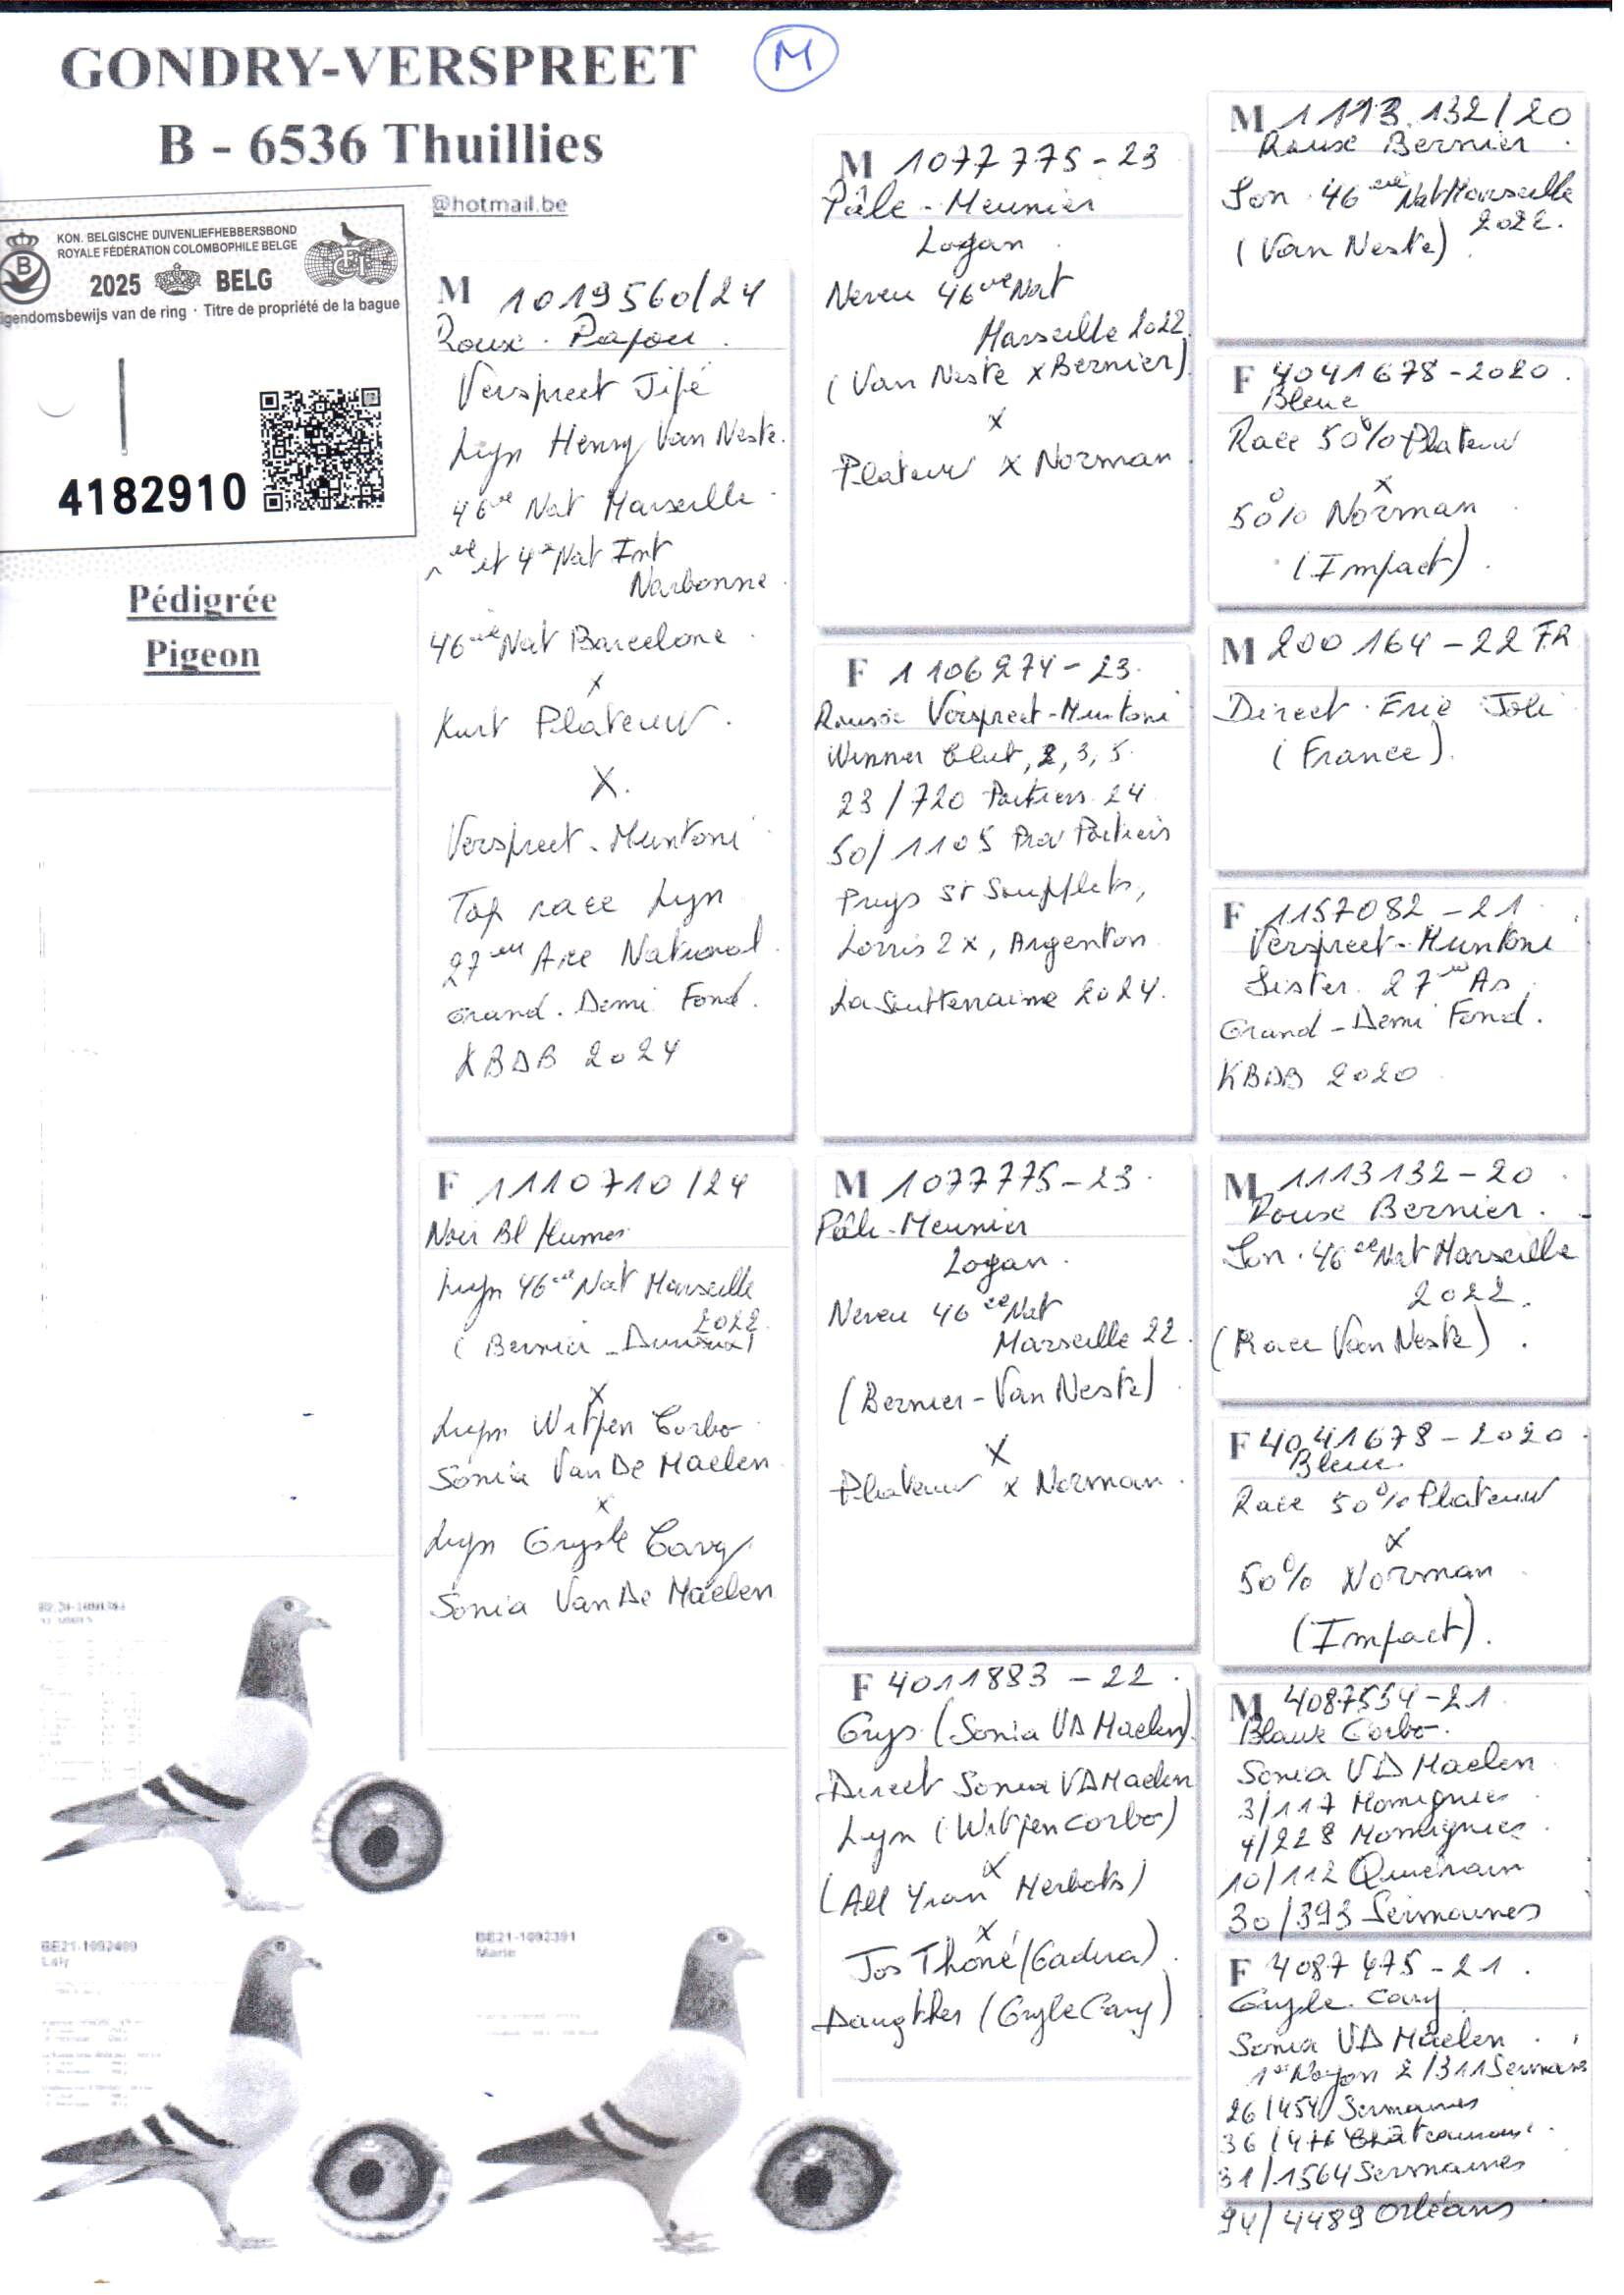 GONDRY-VERSPREET
M
B - 6536 Thuillies
@hotmail.be
KON. BELGISCHE DUIVENLIEFHEBBERSBOND
ROYALE FÉDÉRATION COLOMBOPHILE BELGE
2025 BELG
igendomsbewijs van de ring · Titre de propriété de la bague
4182910
Pédigrée
Pigeon
M 1019560/24
Roux. Papou.
Verspreet Jipé
Lyn Henry Van Neste.
46ème Nat Marseille
et 4e Nat Int
Narbonne
46ème Nat Barcelone
x
Kurt Plateuw.
X.
Verspreet-Muntoni
Top race Lyn
27ème Ace National
Grand. Demi Fond.
KBDB 2024
F 1110710/24
Noir Bl Plumes
Lyn 46ème Nat Marseille
2022
(Bernier -
x
Lyn Witpen Corbo
Sonia Van De Maelen
x
Lyn Gryzle Cavy
Sonia Van De Maelen
M 1077775-23
Pâle-Meunier
Logan
Neveu 46ème Nat
Marseille 2022
(Van Neste x Bernier)
x
Plateuw x Norman
F 1106274-23
Rousse Verspreet-Muntoni
Winner Club, 2, 3, 5.
23/720 Poitiers 24
50/1105 Prov Poitiers
Prys St Soupplets,
Lorris 2x, Argenton
La Soutteraine 2024.
M 1077775-23
Pâle-Meunier
Logan.
Neveu 46ème Nat
Marseille 22
(Bernier-Van Neste)
x
Plateuw x Norman.
F 4011883-22
Grys (Sonia VD Maelen)
Direct Sonia VD Maelen
Lyn (Witpen Corbo)
x
(All Yvan Herbots)
x
Jos Thoné
Daughter (Gryzle Cavy)
M 1113.132/20
Roux Bernier.
Son 46ème Nat Marseille
2022.
(Van Neste)
F 4041678-2020.
Bleue
Race 50% Plateuw
x
50% Norman
(Impact).
M 200164-22 FR
Direct. Eric Joli
(France).
F 1157082-21
Verspreet-Muntoni
Sister 27ème As
Grand-Demi Fond.
KBDB 2020
M 1113132-20
Roux Bernier.
Son. 46ème Nat Marseille
2022.
(Race Van Neste).
F 4041678-2020
Bleue
Race 50% Plateuw
x
50% Norman
(Impact).
M 4087554-21
Blauw Corbo.
Sonia VD Maelen
3/117 Momignies
4/228 Momignies
10/112 Quievrain
30/393 Sermaises
F 4087475-21.
Gryzle Cavy
Sonia VD Maelen
1er Noyon 2/311 Sermaises
26/454 Sermaises
36/476 Châteauroux
31/1564 Sermaises
94/4489 Orléans
BE21-1092409
Laly
BE21-1092391
Marie